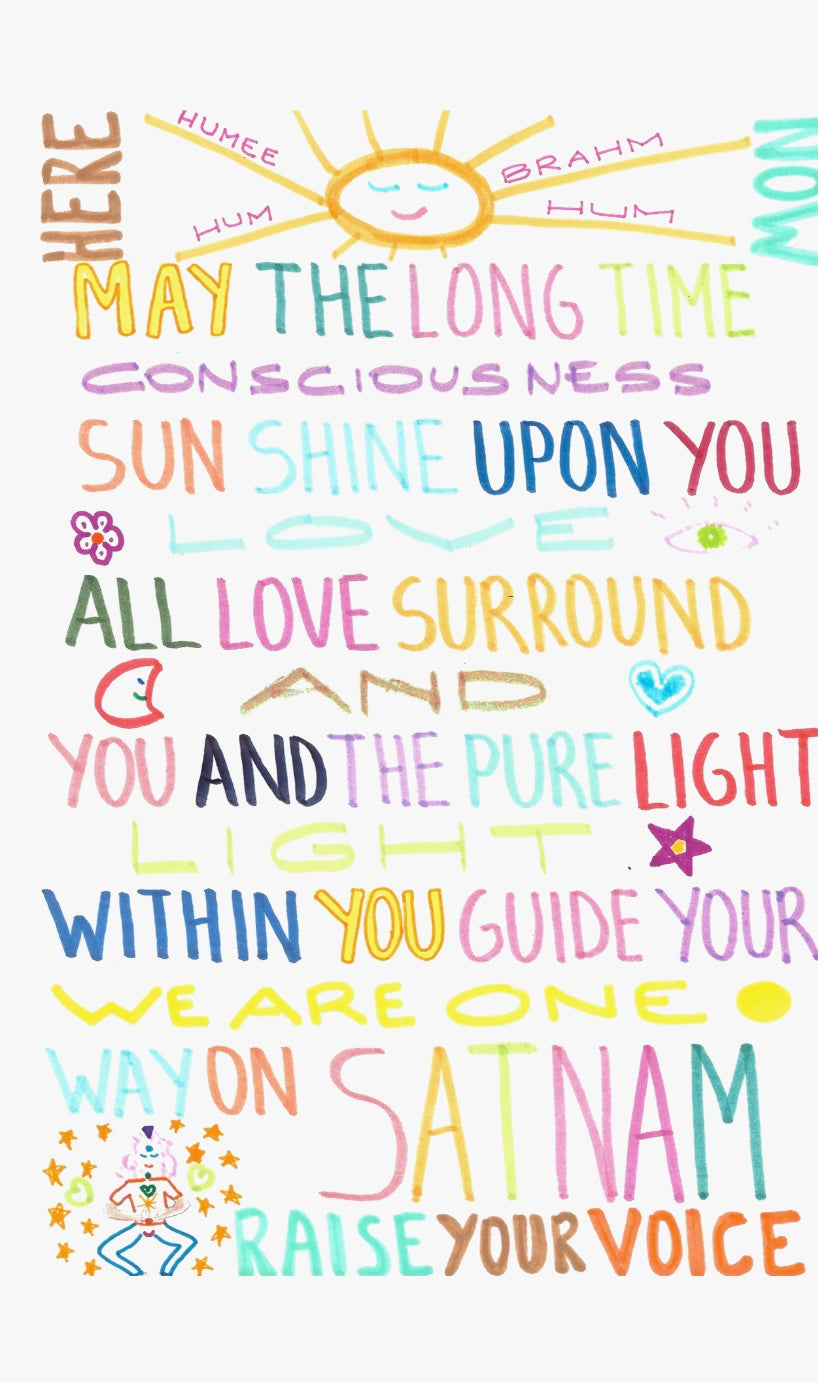 HERE
HUMEE
HUM
BRAHM
HUM
NOW
MAY THE LONG TIME
CONSCIOUSNESS
SUN SHINE UPON YOU
LOVE
ALL LOVE SURROUND
AND
YOU AND THE PURE LIGHT
LIGHT
WITHIN YOU GUIDE YOUR
WE ARE ONE
WAY ON SATNAM
RAISE YOUR VOICE